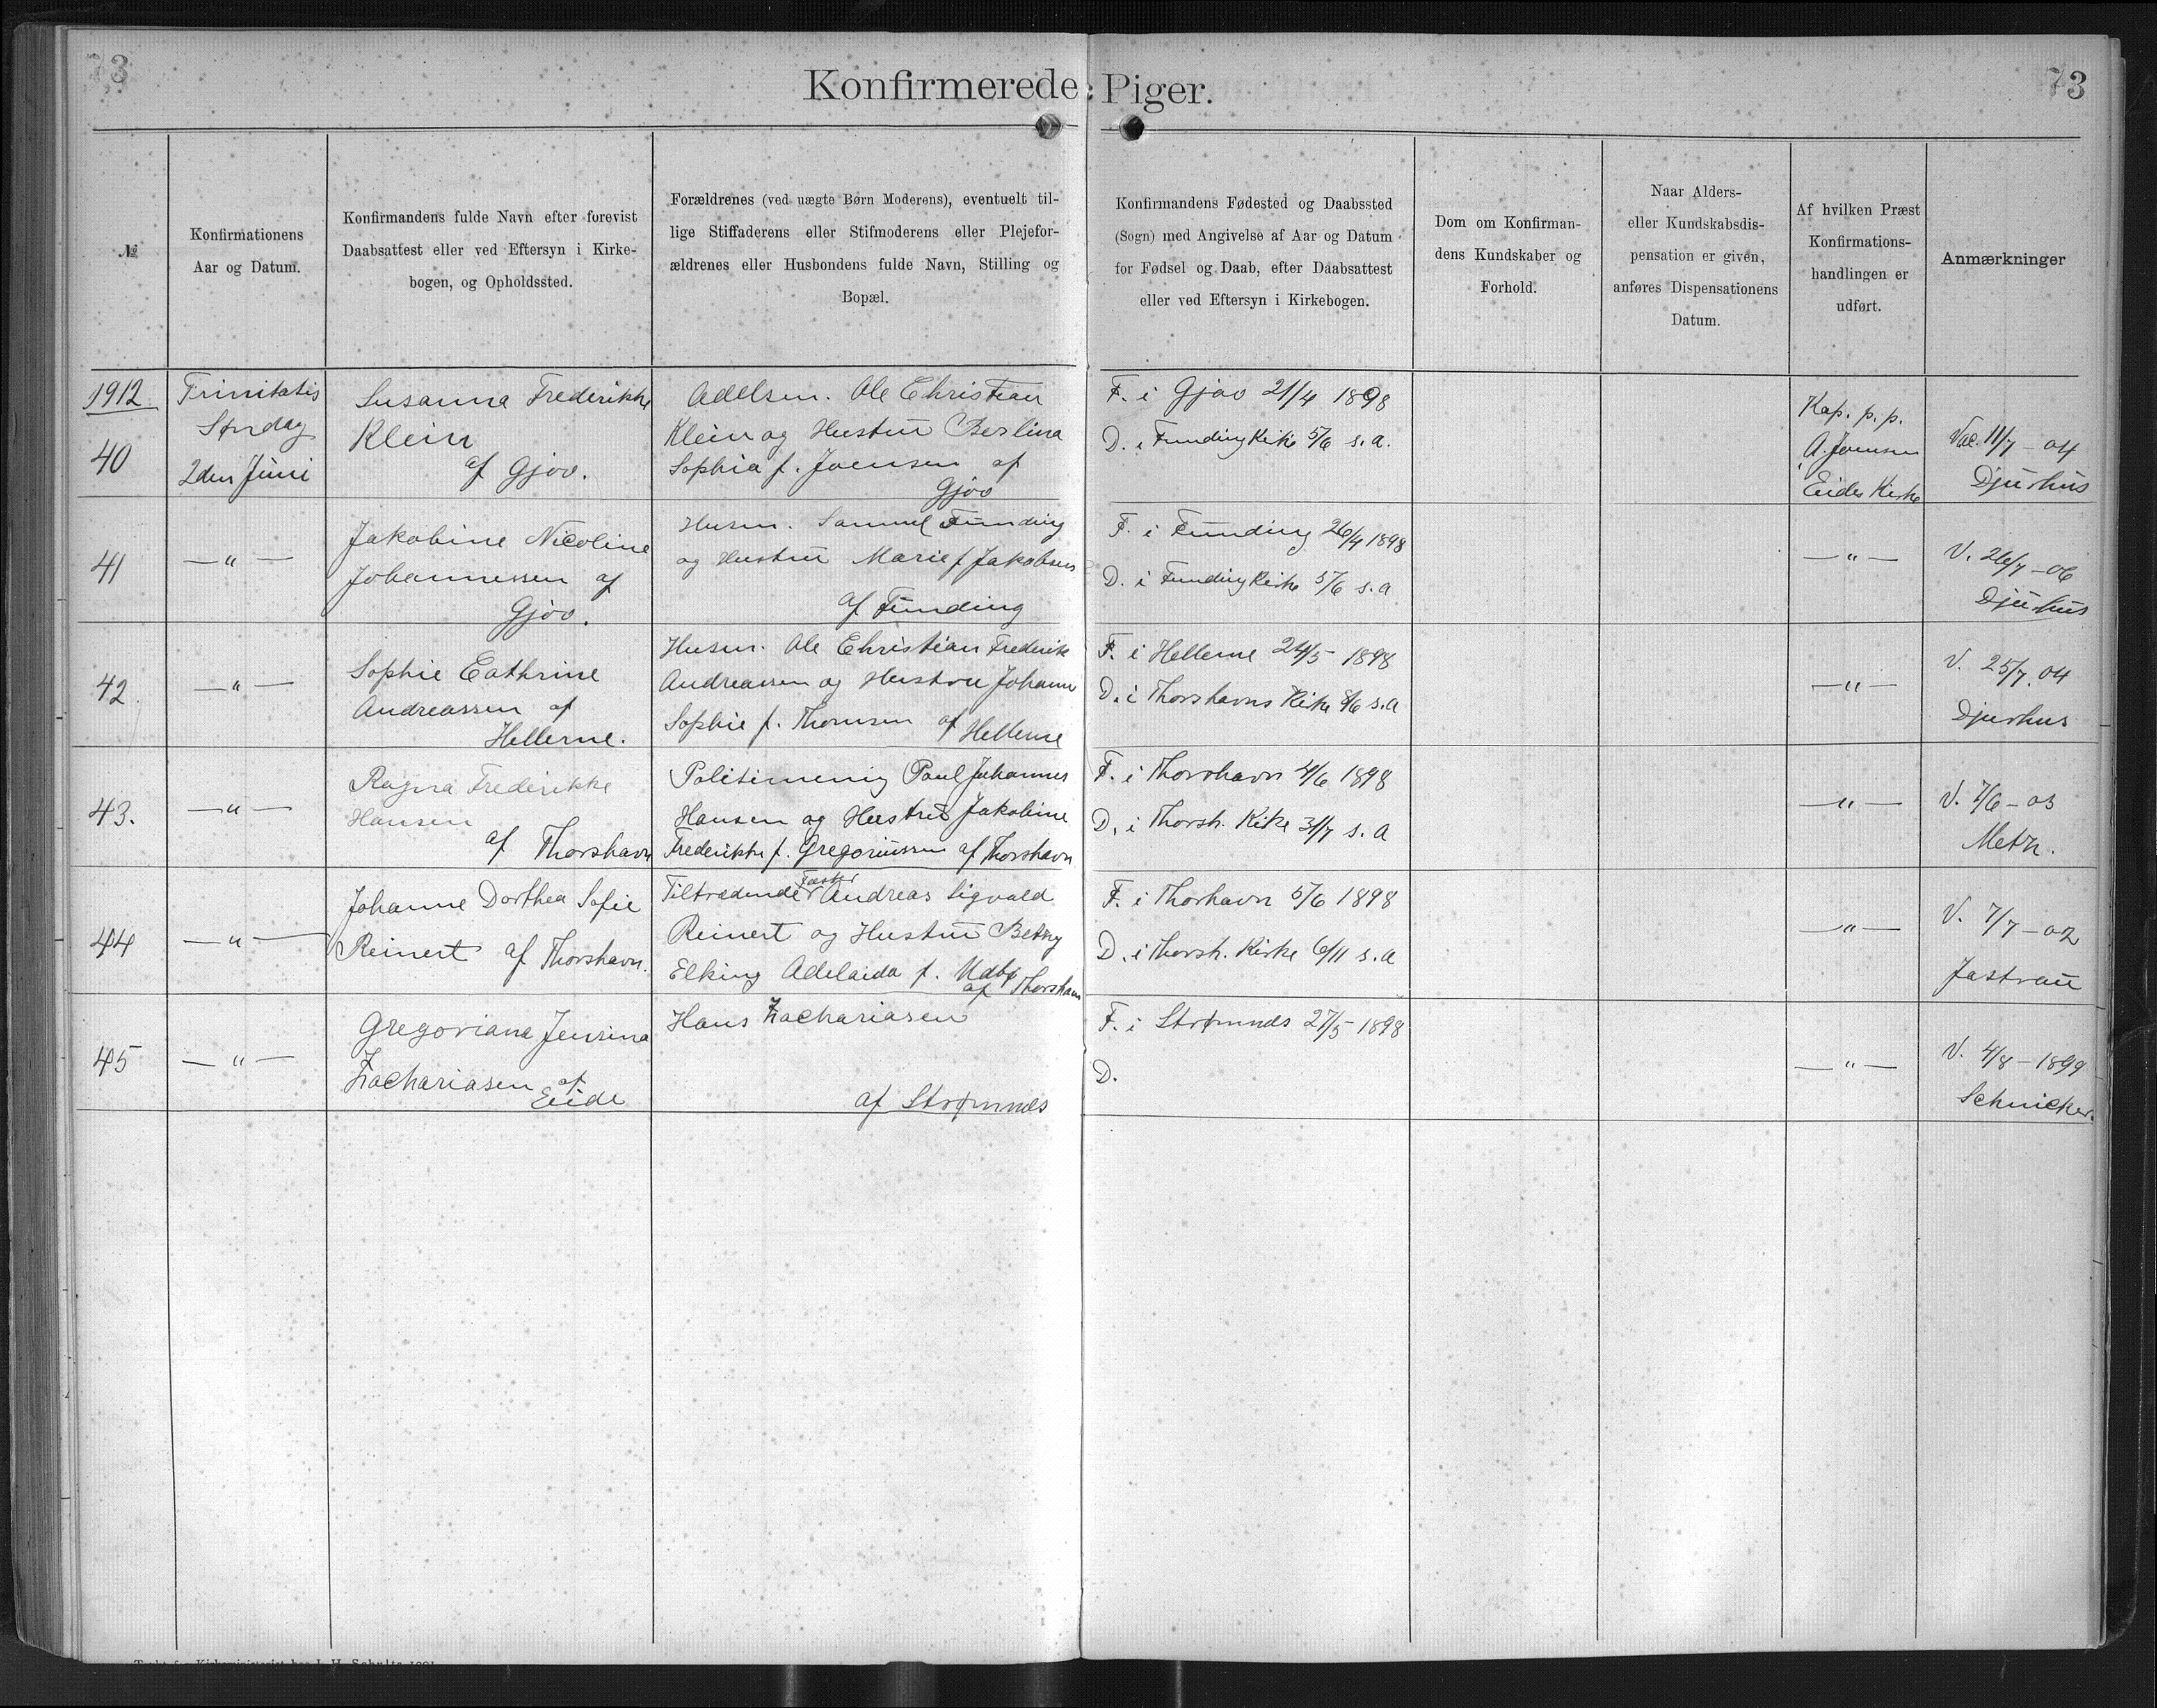 73
Konfirmerede Piger.
73
№
Konfirmationens
Aar og Datum.
Konfirmandens fulde Navn efter forevist
Daabsattest eller ved Eftersyn i Kirke-
bogen, og Opholdssted.
Forældrenes (ved uægte Børn Moderens), eventuelt til-
lige Stiffaderens eller Stifmoderens eller Plejefor-
ældrenes eller Husbondens fulde Navn, Stilling og
Bopæl.
Konfirmandens Fødested og Daabssted
(Sogn) med Angivelse af Aar og Datum
for Fødsel og Daab, efter Daabsattest
eller ved Eftersyn i Kirkebogen.
Dom om Konfirman-
dens Kundskaber og
Forhold.
Naar Alders-
eller Kundskabsdis-
pensation er given,
anføres Dispensationens
Datum.
Af hvilken Præst
Konfirmations-
handlingen er
udført.
Anmærkninger
1912
40
Trinitatis
Søndag
2den Juni
Susanna Frederikke
Klein
af Gjov.
Adelsm. Ole Christian
Klein og Hustru Berlina
Sophia f. Joensen af
Gjov
F. i Gjov 21/4 1898
D. i Funding Kirke 5/6 s. a.
Kap. p. p.
A. Joensen
Eides Kirke
Vac. 11/7 - 04
Djurhus
41
— " —
Jakobine Nicoline
Johannessen af
Gjov.
Husm. Samuel Funding
og Hustru Marie f. Jakobsen
af Funding
F. i Funding 26/4 1898
D. i Funding Kirke 5/6 s. a
— " —
V. 26/7 - 06
Djurhus
42.
— " —
Sophie Cathrine
Andreassen af
Hellerne.
Husm. Ole Christian Frederik
Andreassen og Hustru Johanne
Sophie f. Thomsen af Hellerne
F. i Hellerne 24/5 1898
D. i Thorshavns Kirke 8/6 s. a
— " —
V. 25/7. 04
Djurhus
43.
— " —
Ragna Frederikke
Hansen
af Thorshavn
Politimenig Poul Johannes
Hansen og Hustru Jakobine
Frederikke f. Gregoriussen af Thorshavn
F. i Thorshavn 4/6 1898
D. i Thorsh. Kirke 31/7 s. a
— " —
V. 7/6 - 03
Metz.
44
— " —
Johanne Dorthea Sofie
Reinert af Thorshavn.
Tiltrædende Fæster Andreas Sigvald
Reinert og Hustru Betzy
Elking Adelaida f.
af Thorshavn
F. i Thorhavn 5/6 1898
D. i Thorsh. Kirke 6/11 s. a
— " —
V. 7/7 - 02
Jastrau
45
— " —
Gregoriana Jensina
Zachariasen af
Eide
Hans Zachariasen
af Strømnæs
F. i Strømnæs 27/5 1898
D.
— " —
V. 4/8 - 1899
Schnicker.